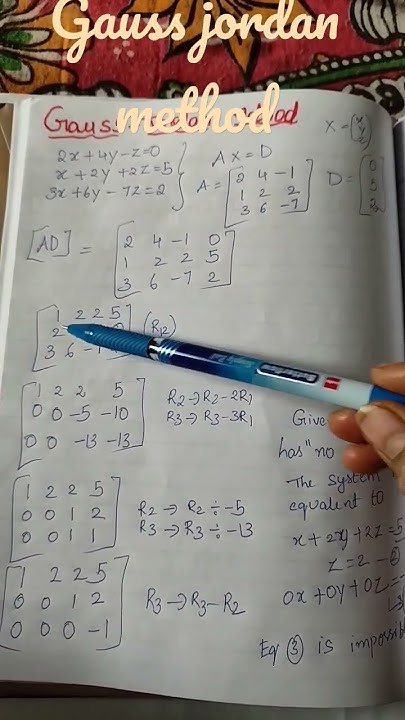 Gauss jordan
method
Gauss Jordan Method
2x+4y-z=0
x+2y+2z=5
3x+6y-7z=2
AX=D
X=
x
y
z
A=
2 4 -1
1 2 2
3 6 -7
D=
0
5
2
[AD] =
2 4 -1 0
1 2 2 5
3 6 -7 2
1 2 2 5
2
3 6
(R12)
1 2 2 5
0 0 -5 -10
0 0 -13 -13
R2→R2-2R1
R3→R3-3R1
1 2 2 5
0 0 1 2
0 0 1 1
R2→R2÷-5
R3→R3÷-13
1 2 2 5
0 0 1 2
0 0 0 -1
R3→R3-R2
Give
has "no
The system
equalent to
x+2y+2z=5
z=2-②
0x+0y+0z=-
Eq ③ is impossib